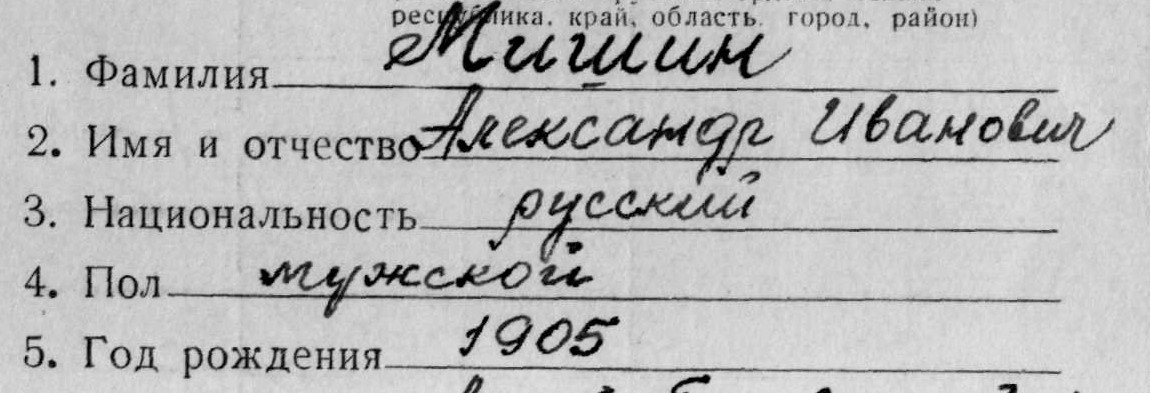 республика, край, область, город, район)
1. Фамилия Мишин
2. Имя и отчество Александр Иванович
3. Национальность русский
4. Пол мужской
5. Год рождения 1905